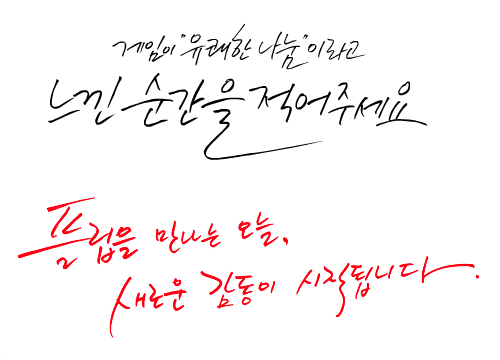 게임이 "유쾌한 나눔"이라고
느낀 순간을 적어주세요
플럽을 만나는 오늘,
새로운 감동이 시작됩니다.